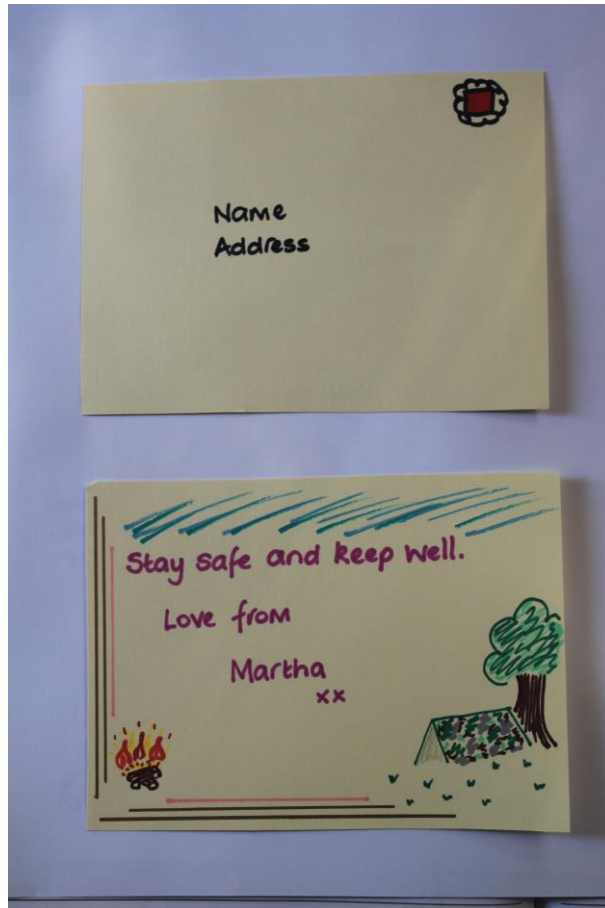 Name
Address
Stay safe and keep well.
Love from
Martha
xx